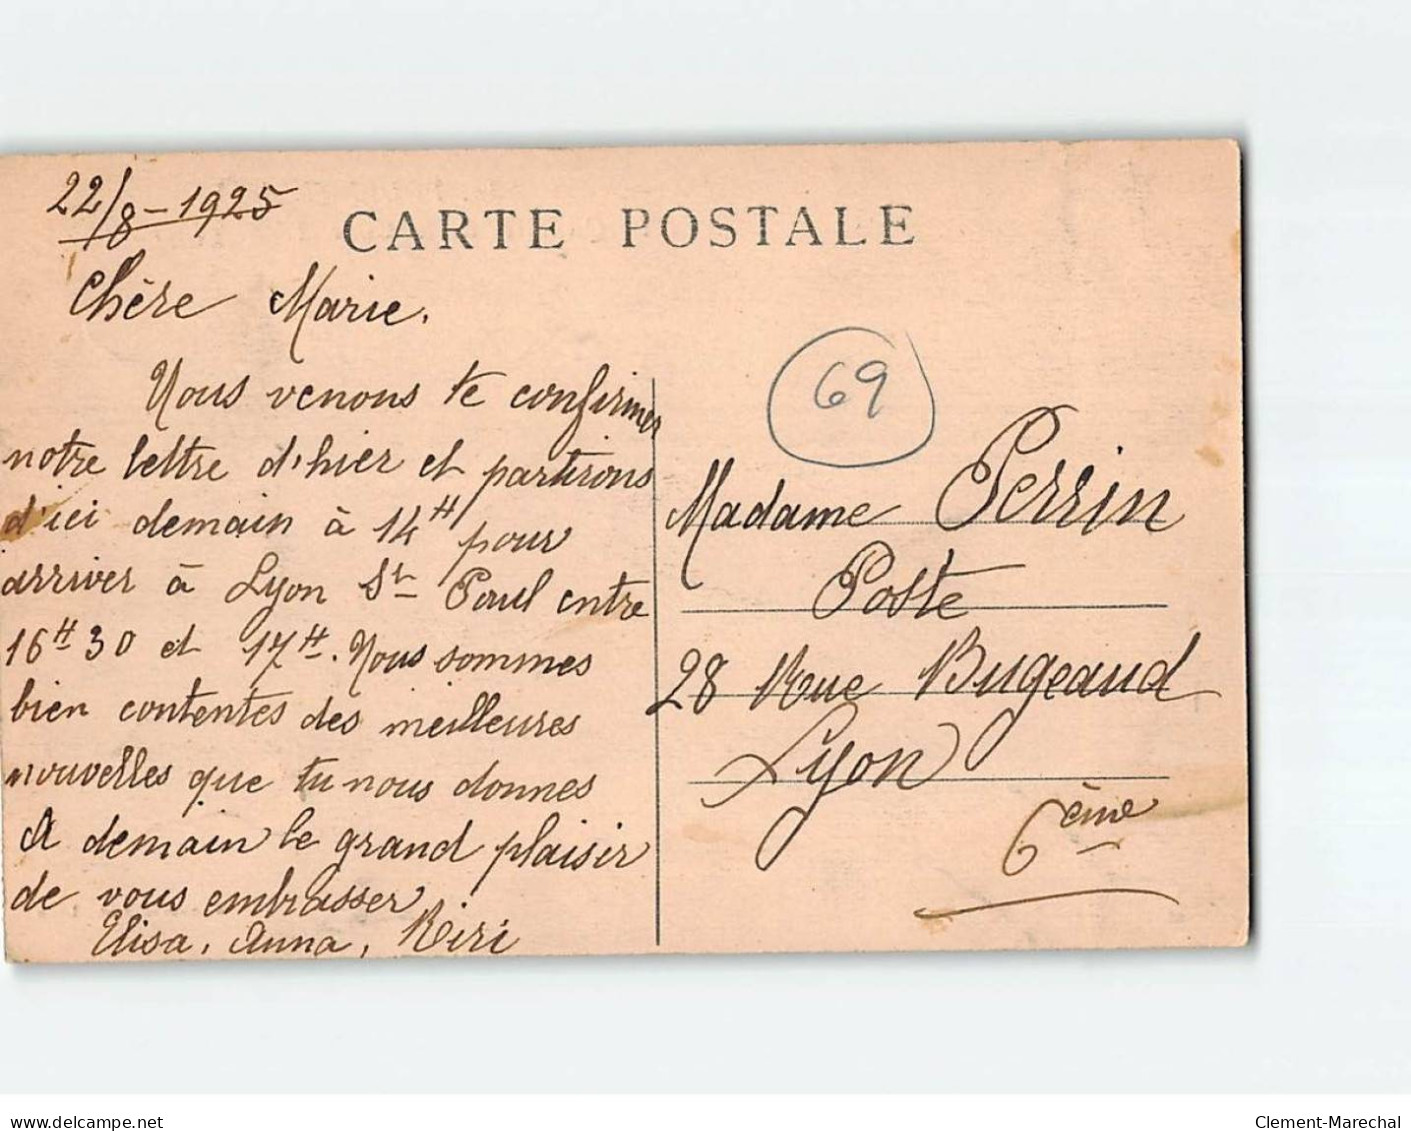 22/8-1925
CARTE POSTALE
Chère Marie.
Nous venons te confirmer
notre lettre d'hier et partirons
d'ici demain à 14H pour
arriver à Lyon St Paul entre
16H30 et 17H. Nous sommes
bien contentes des meilleures
nouvelles que tu nous donnes
A demain le grand plaisir
de vous embrasser
Elisa, Anna, Riri
69
Madame Perrin
Poste
28 Rue Bugeaud
Lyon
6ème
www.delcampe.net
Clement-Marechal